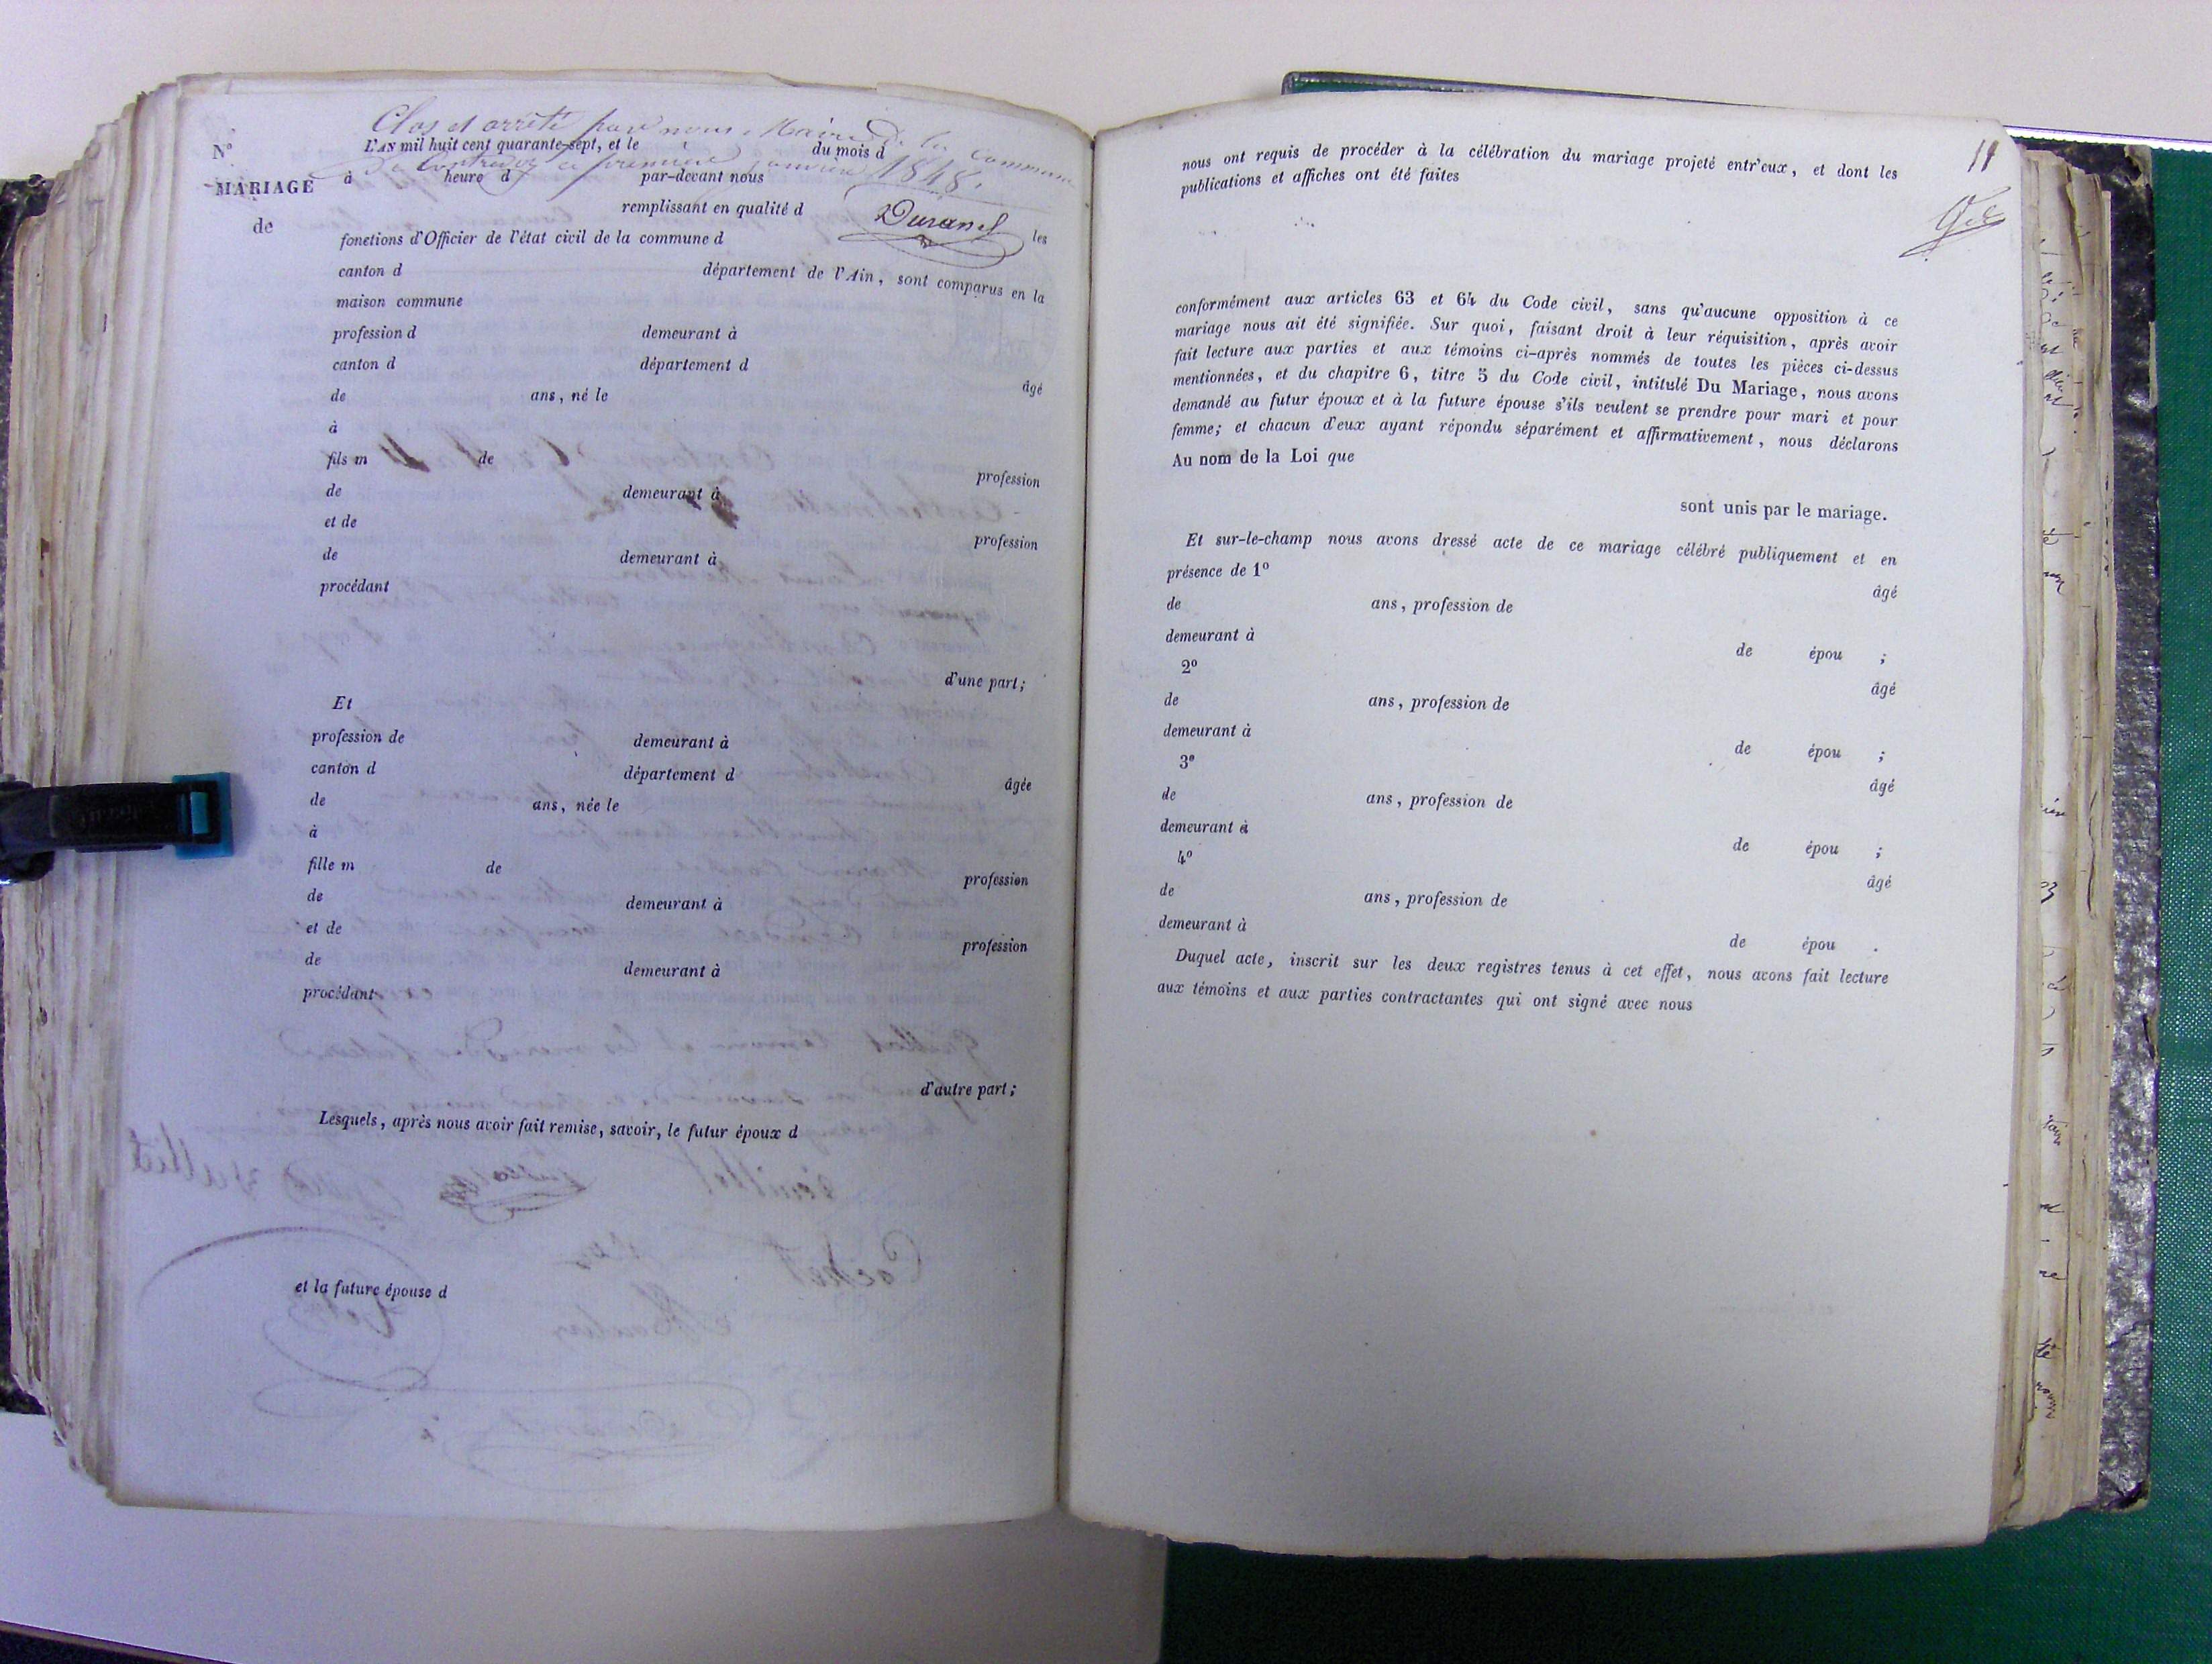 Clos et arrêté par nous Maire de la Commune
N°
L'AN mil huit cent quarante-sept, et le du mois d
de ce premier janvier 1848.
MARIAGE
à heure d par-devant nous
remplissant en qualité d
Durand
de
les
fonctions d'Officier de l'état civil de la commune d
canton d département de l'Ain, sont comparus en la
maison commune
profession d demeurant à
canton d département d
âgé
de ans, né le
à
fils m de
profession
de demeurant à
et de
profession
de demeurant à
procédant
d'une part;
Et
profession de demeurant à
canton d département d
âgée
de ans, née le
à
fille m de
profession
de demeurant à
et de
profession
de demeurant à
procédant
d'autre part;
Lesquels, après nous avoir fait remise, savoir, le futur époux d
et la future épouse d
11
nous ont requis de procéder à la célébration du mariage projeté entr'eux, et dont les
publications et affiches ont été faites
conformément aux articles 63 et 64 du Code civil, sans qu'aucune opposition à ce
mariage nous ait été signifiée. Sur quoi, faisant droit à leur réquisition, après avoir
fait lecture aux parties et aux témoins ci-après nommés de toutes les pièces ci-dessus
mentionnées, et du chapitre 6, titre 5 du Code civil, intitulé Du Mariage, nous avons
demandé au futur époux et à la future épouse s'ils veulent se prendre pour mari et pour
femme; et chacun d'eux ayant répondu séparément et affirmativement, nous déclarons
Au nom de la Loi que
sont unis par le mariage.
Et sur-le-champ nous avons dressé acte de ce mariage célébré publiquement et en
présence de 1°
âgé
de ans, profession de
demeurant à
de épou ;
2°
âgé
de ans, profession de
demeurant à
de épou ;
3°
âgé
de ans, profession de
demeurant à
de épou ;
4°
âgé
de ans, profession de
demeurant à
de épou .
Duquel acte, inscrit sur les deux registres tenus à cet effet, nous avons fait lecture
aux témoins et aux parties contractantes qui ont signé avec nous